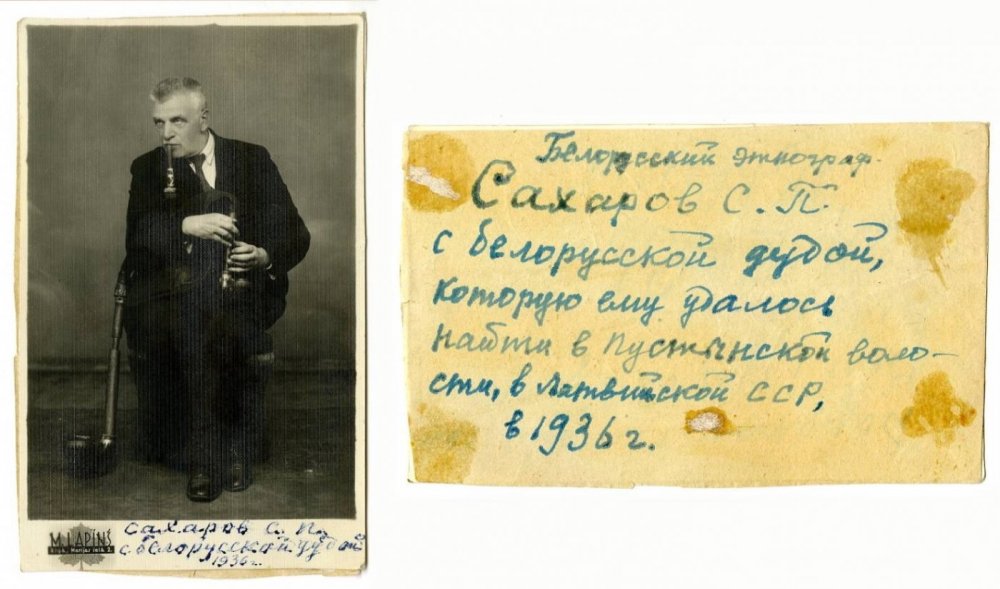 M. LAPIŅŠ
Rīgā, Marijas ielā 2.
Сахаров С. П.
с белорусской дудой
1936 г.
Белорусский этнограф.
Сахаров С. П.
с белорусской дудой,
которую ему удалось
найти в Пустынской воло-
сти, в Латвийской ССР,
в 1936 г.